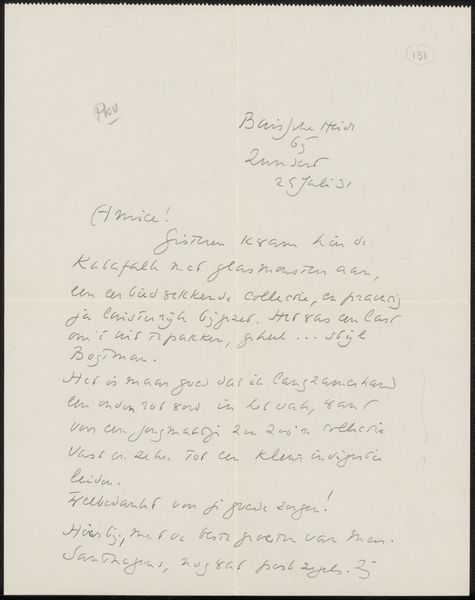 131
PKV
Buissche Heide
65
Zundert
25 Juli 51
Amice!
Gisteren kwam hier de
Katafalk met glasmonsters aan,
een eerbiedwekkende collectie, en prachtig
ja luisterrijk bijgezet. Het was een last
om 't uit te pakken, geheel ... stijl
Bogtman.
Het is maar goed dat ik langzamerhand
een ouden rot word in het vak, want
voor een jongmaatje zou zoo'n collectie
vast en zeker tot een kleine indigestie
leiden.
Welbedankt voor je goede zorgen!
Hierbij, met de beste groeten van Mev.
Santhagens, nog wat postzegels. Zij